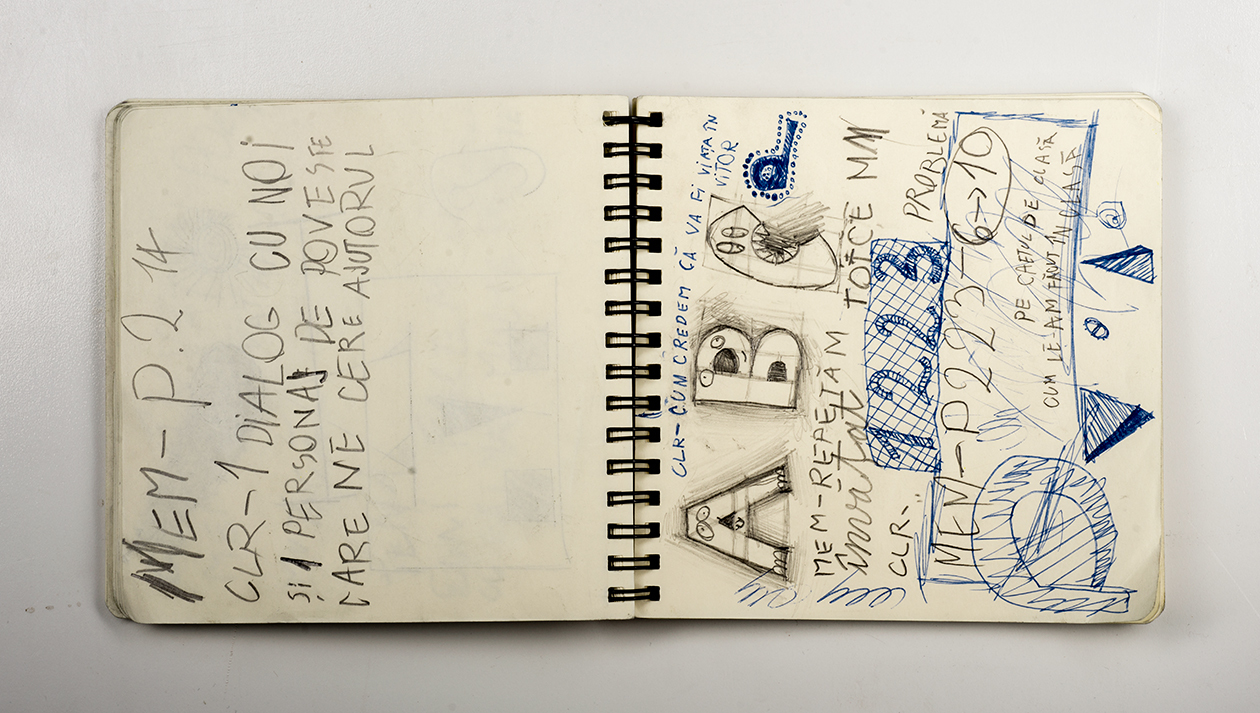 MEM - P. 2 14
CLR-1 DIALOG CU NOI
ȘI 1 PERSONAJ DE POVESTE
CARE NE CERE AJUTORUL
CLR-CUM CREDEM CĂ VA FI VIAȚA ÎN
VITOR
A B C
MEM-REPETĂM TOT CE
învățat
CLR- 1 2 2 3 PROBLEMĂ
MEM-P 223-6→10
PE CAETUL DE CLASĂ
CUM LE-AM FĂCUT ÎN CLASĂ